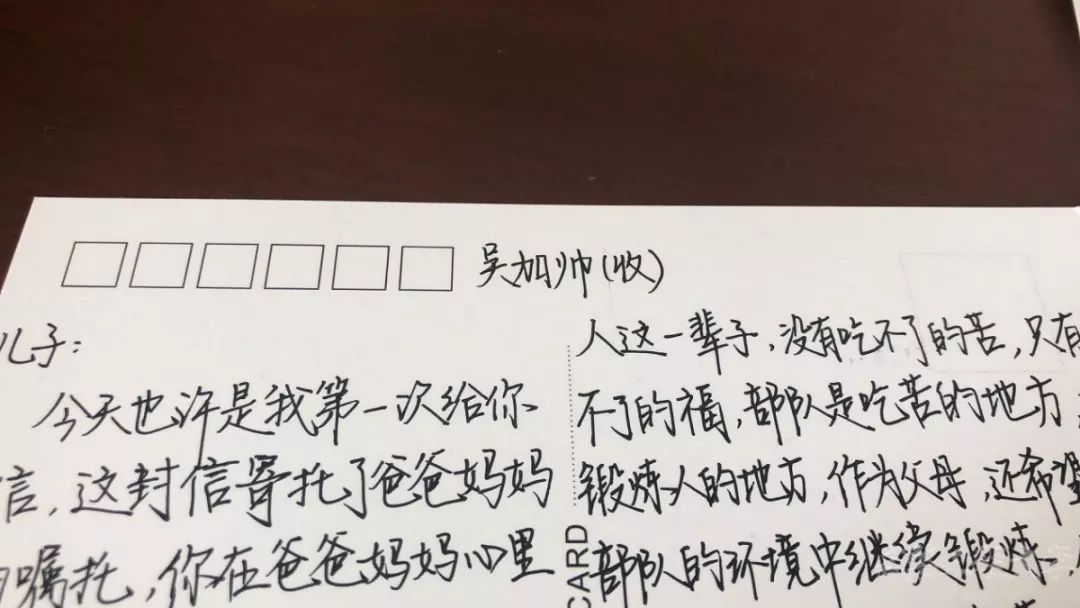 吴加帅(收)
儿子：
今天也许是我第一次给你
信，这封信寄托了爸爸妈妈
嘱托，你在爸爸妈妈心里
人这一辈子，没有吃不了的苦，只有
不了的福，部队是吃苦的地方
锻炼人的地方，作为父母，还希望
部队的环境中继续锻炼，
CARD